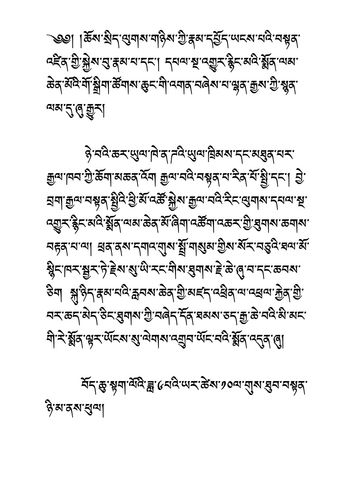 ༄༅། །ཆོས་སྲིད་ལུགས་གཉིས་ཀྱི་རྣམ་དཔྱོད་ཡངས་པའི་བསྟན་
འཛིན་གྱི་སྐྱེས་བུ་རྣམ་པ་དང་། དཔལ་སྔ་འགྱུར་རྙིང་མའི་སྨོན་ལམ་
ཆེན་མོའི་གོ་སྒྲིག་ཚོགས་ཆུང་གི་འགན་བཞེས་པ་ལྷན་རྒྱས་ཀྱི་སྙན་
ལམ་དུ་ཞུ་རྒྱུར།
ཉེ་བའི་ཆར་ཡུལ་ཁེ་ན་ཌའི་ཡུལ་ཁྲིམས་དང་མཐུན་པར་
རྒྱལ་ཁབ་ཀྱི་ཆོག་མཆན་འོག རྒྱལ་བའི་བསྟན་པ་རིན་པོ་སྤྱི་དང་། བྱེ་
བྲག་རྒྱལ་བསྟན་སྤྱིའི་ཕྱི་མོ་འཚོ་སྐྱེས་རྒྱལ་བའི་རིང་ལུགས་དཔལ་སྔ་
འགྱུར་རྙིང་མའི་སྨོན་ལམ་ཆེན་མོ་ཞིག་འཚོག་འཆར་གྱི་ཐུགས་ཆགས་
བརྟན་པ་ལ། ཕྲན་ནས་དགའ་གུས་སྤྲོ་གསུམ་གྱིས་སོར་བཅུའི་ཐལ་མོ་
སྙིང་ཁར་སྦྱར་ཏེ་རྗེས་སུ་ཡི་རང་གིས་ཐུགས་རྗེ་ཆེ་ཞུ་བ་དང་ཆབས་
ཅིག སྐུ་ཉིད་རྣམ་པའི་རླབས་ཆེན་གྱི་མཛད་འཕྲིན་ལ་འཕྲལ་རྐྱེན་གྱི་
བར་ཆད་མེད་ཅིང་ཐུགས་ཀྱི་བཞེད་དོན་ཐམས་ཅད་རྒྱ་ཆེ་བའི་མི་མང་
གི་རེ་སྨོན་ལྟར་ཡོངས་སུ་ལེགས་འགྲུབ་ཡོང་བའི་སྨོན་འདུན་ཞུ།
བོད་ཆུ་སྟག་ལོའི་ཟླ་༤པའི་ཡར་ཚེས་༡༠ལ་གུས་ཐུབ་བསྟན་
ཉི་མ་ནས་ཕུལ།